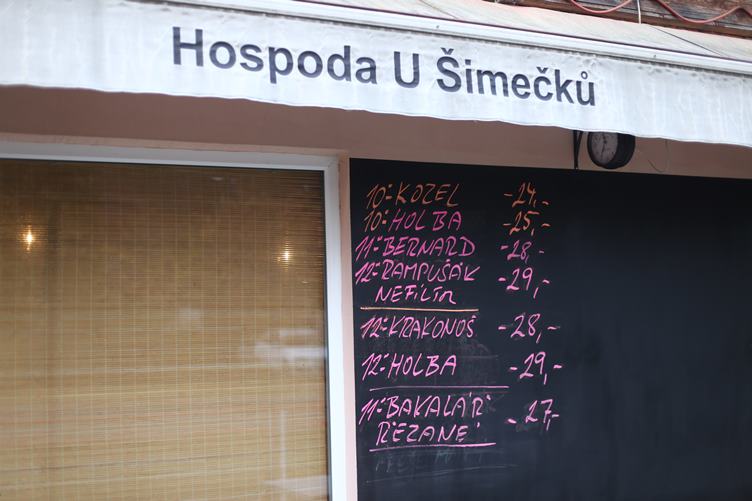 Hospoda U Šimečků
10° KOZEL -24,-
10° HOLBA -25,-
11° BERNARD -28,-
12° RAMPUŠÁK -29,-
NEFILTR
12° KRAKONOŠ -28,-
12° HOLBA -29,-
11° BAKALÁŘ - 27,-
ŘEZANÉ